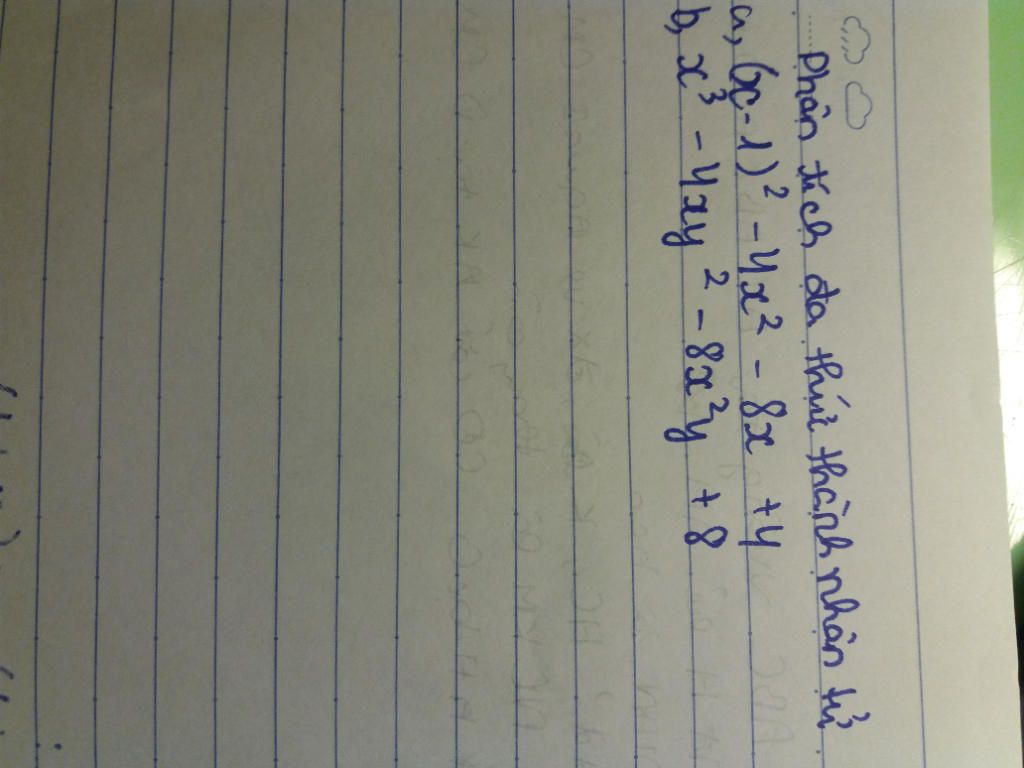 Phân tích đa thức thành nhân tử
a, (x-1)² - 4x² - 8x + 4
b, x³ - 4xy² - 8x²y + 8